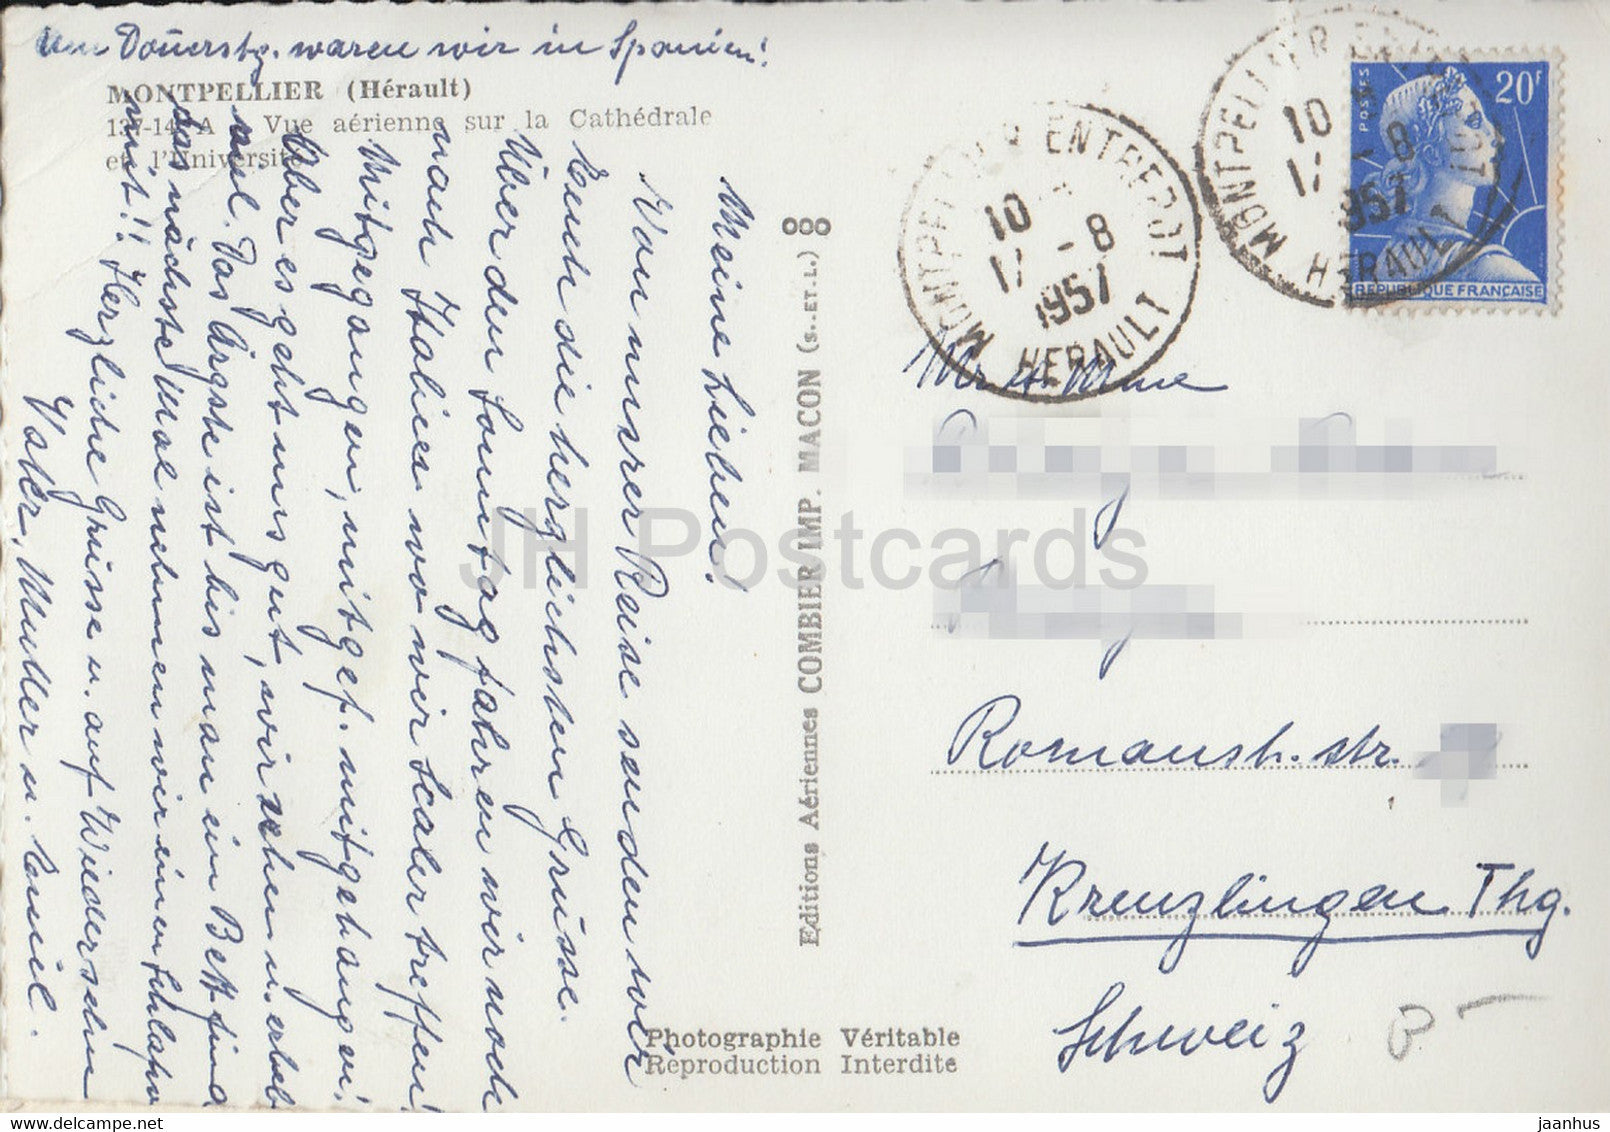 Am Donerstg. waren wir in Spanien!
MONTPELLIER (Hérault)
137-14 A Vue aérienne sur la Cathédrale
et l'Université
Meine Lieben!
Von unsrer Reise senden wir
Euch die herzlichsten Grüsse.
Über den Sonntag fahren wir noch
nach Italien wo wir Scaler treffen!
Mitgegangen, mitgef. mitgehangen!
Aber es geht uns gut, wir sehen u. erleb
viel. Das Ärgste ist bis man ein Bett find
das nächste Mal nehmen wir einen Schlafw
mit!! Herzliche Grüsse u. auf Wiedersehn
Vater, Mutter u. Emil.
Editions Aériennes COMBIER IMP. MACON (S. ET. L.)
Photographie Véritable
Reproduction Interdite
MONTPELLIER ENTREPOT
10
17 - 8
1957
HERAULT
MONTPELLIER ENTREPOT
10
17 - 8
1957
HERAULT
POSTES
20F
REPUBLIQUE FRANÇAISE
Mr et Mme
Romansh. str.
Kreuzlingen Thg.
Schweiz
JH Postcards
jaanhus